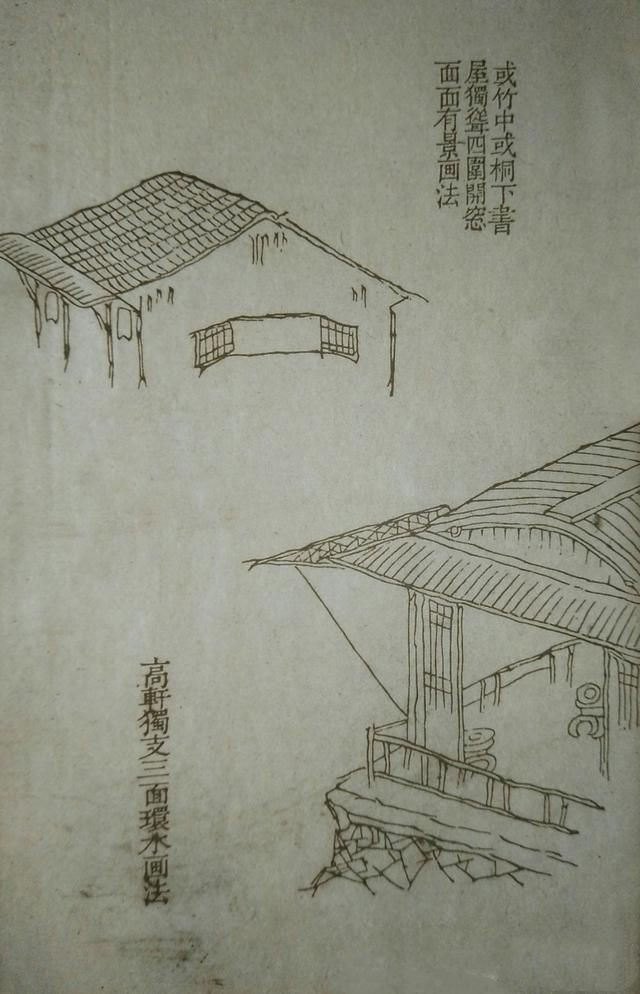 或竹中或桐下書
屋獨聳四圍開窓
面面有景画法
高軒獨支三面環水画法